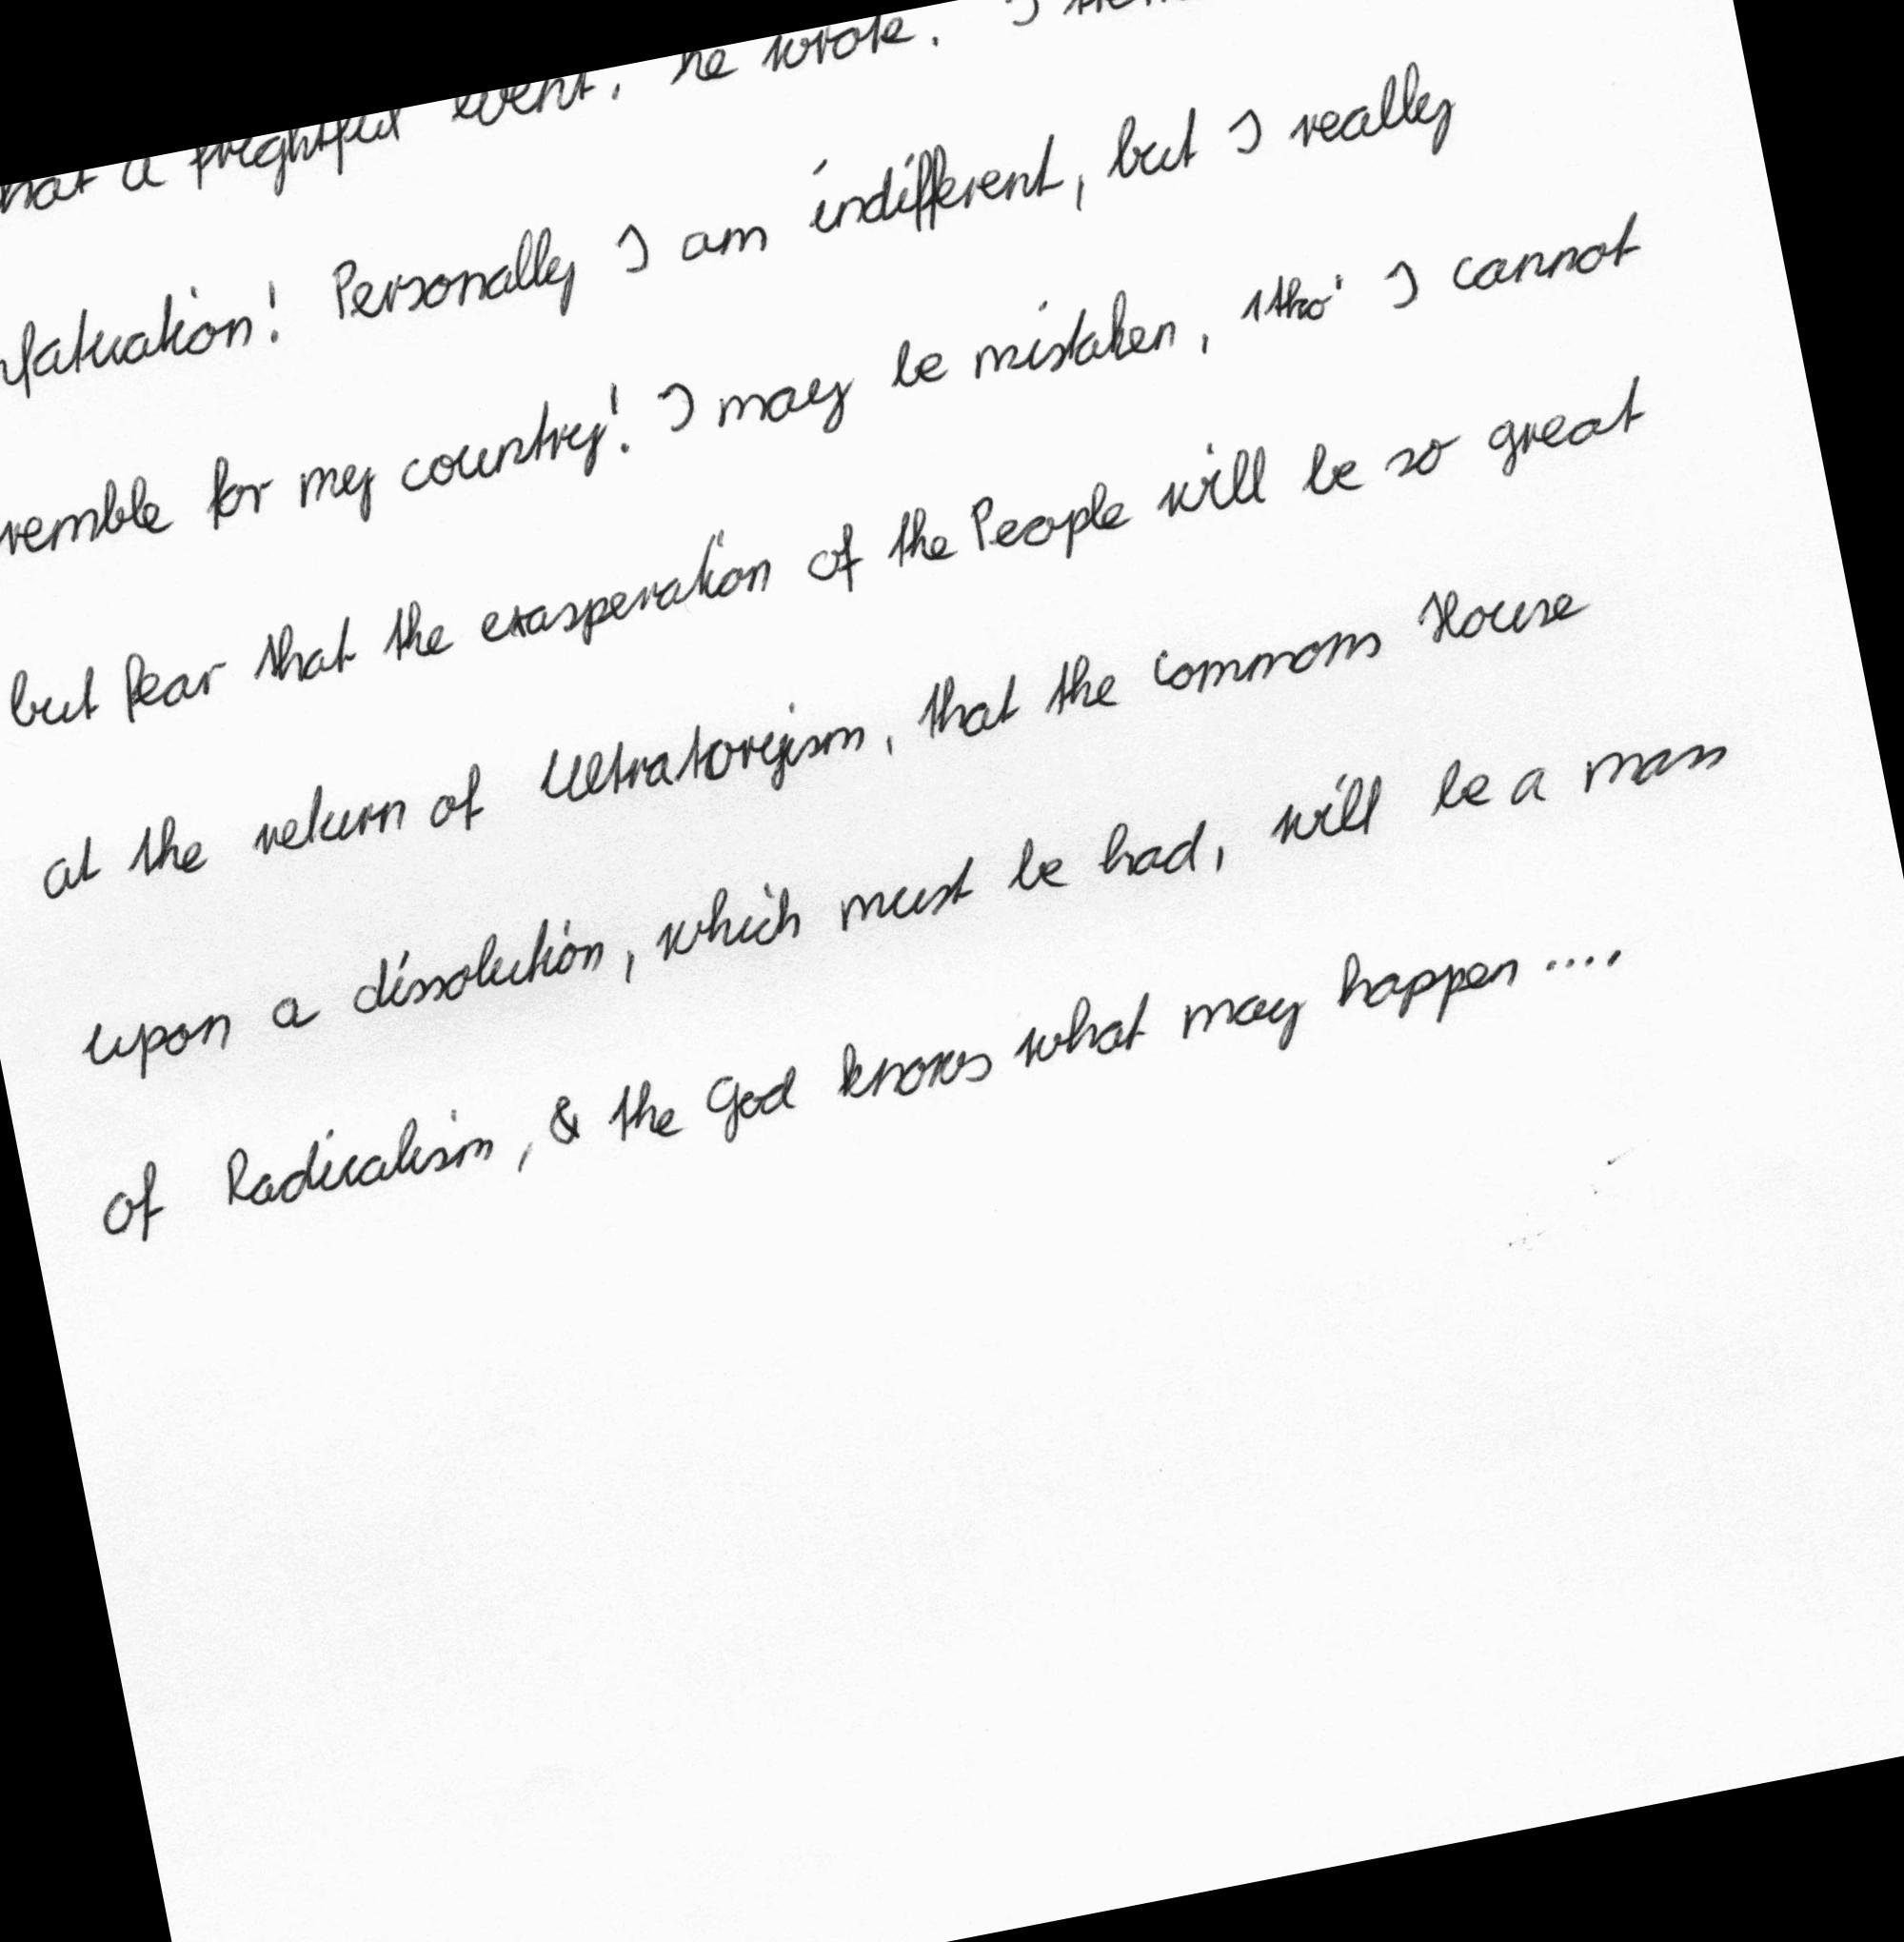 a frightful event, he wrote. I
Personally I am indifferent, but I really
for my country! I may be mistaken, tho' I cannot
but fear that the exasperation of the People will be so great
at the return of Ultratoryism, that the Commons House
upon a dissolution, which must be had, will be a mass
of Radicalism, & the God knows what may happen ....